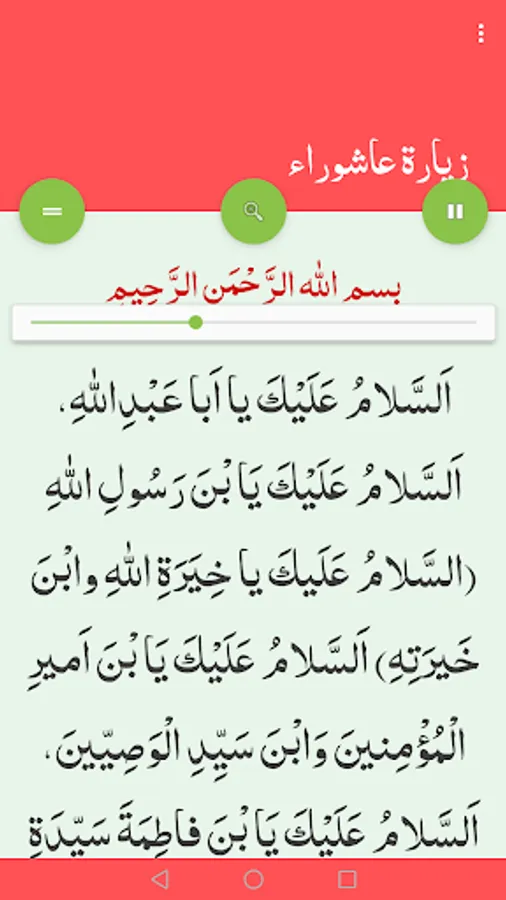 زيارة عاشوراء
بسم الله الرَّحْمَن الرَّحِيمِ
اَلسَّلامُ عَلَيْكَ يا اَبا عَبْدِاللهِ،
اَلسَّلامُ عَلَيْكَ يَا بْنَ رَسُولِ اللهِ
(السَّلامُ عَلَيكَ يا خِيَرَةِ اللهِ وابْنَ
خَيرَتِهِ) اَلسَّلامُ عَلَيْكَ يَا بْنَ اَميرِ
الْمُؤْمِنينَ وَابْنَ سَيِّدِ الْوَصِيّينَ،
اَلسَّلامُ عَلَيْكَ يَا بْنَ فاطِمَةَ سَيِّدَةِ